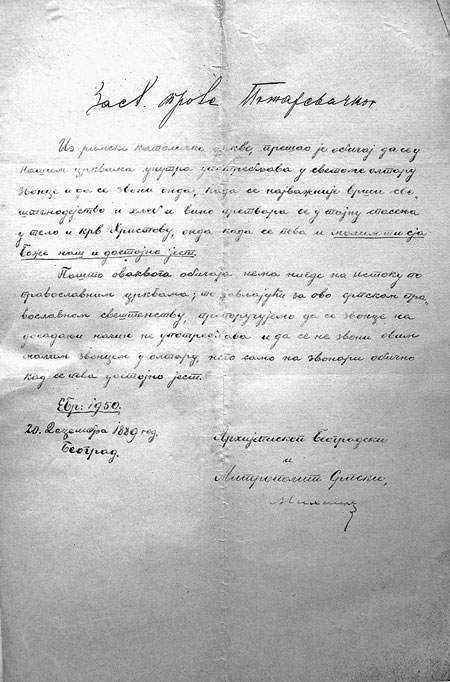 За св. прота Пожаревачког
Из римске католичке цркве, прешао је обичај да се у
нашим црквама унутра употребљава у светоме олтару
звонце и да се звони онда, када се најважније врши све-
штенодејство и хлеб и вино претвара се у тајну спасења
у тело и крв Христову, онда када се пева и молим ти сја
Боже наш и достојно јест.
Пошто оваквога обичаја нема нигде на истоку по
православним црквама; то јављајући за ово српском пра-
вославном свештенству, препоручујемо да се звонце на
досадањи начин не употребљава и да се не звони овим
малим звонцем у олтару, него само на звонари обично
кад се пева достојно јест.
Ебр: 1950.
20. Децембра 1889 год.
Београд.
Архијепископ Београдски
и
Митрополит Српски,
Михаил